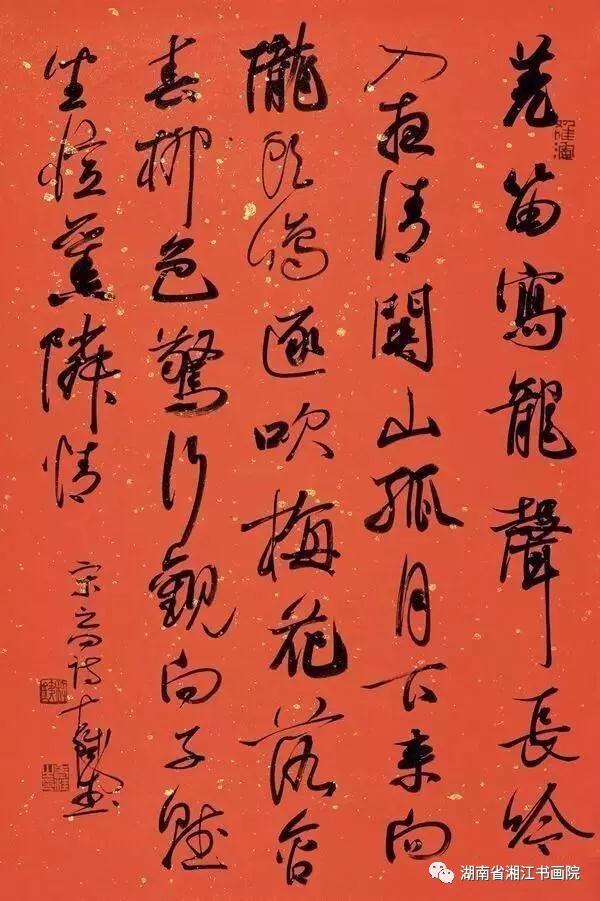 羌笛寫龍聲長吟
入夜清關山孤月下來向
隴頭鳴逐吹梅花落含
春柳色驚行觀向子賦
坐憶舊隣情
湖南省湘江书画院